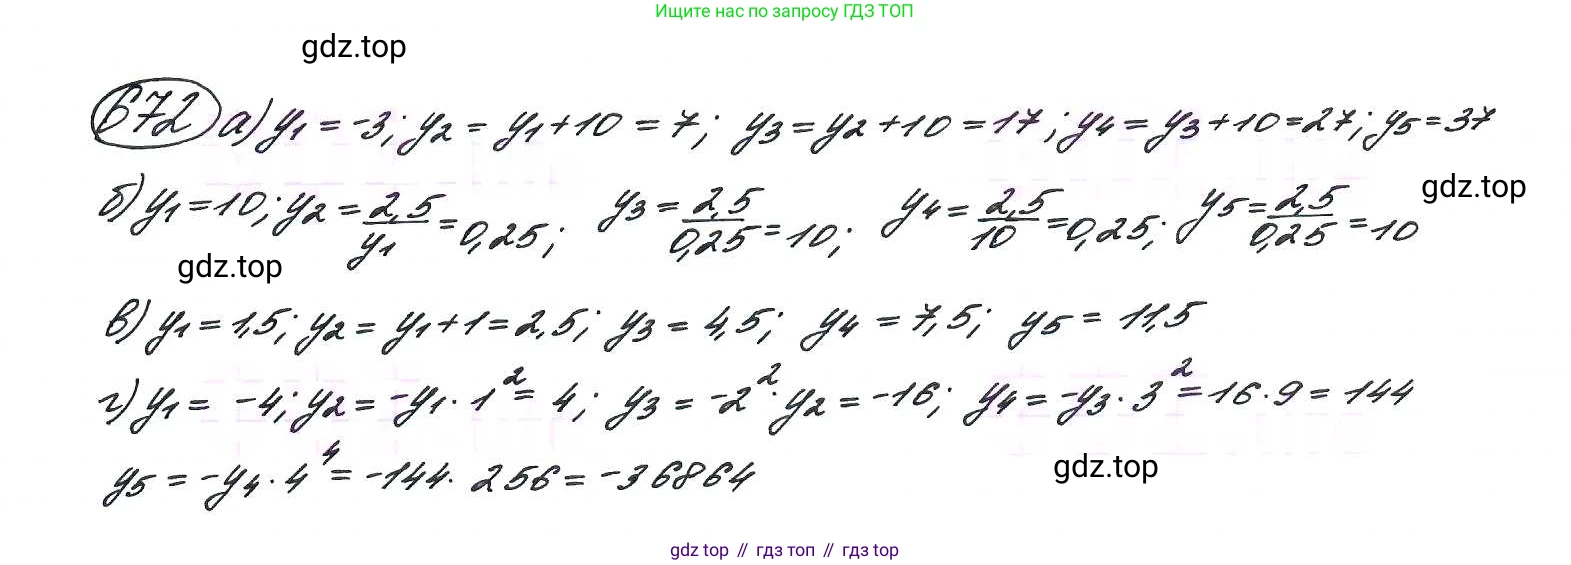 Ищите нас по запросу ГДЗ ТОП
gdz.top
672 а) y₁ = -3; y₂ = y₁ + 10 = 7; y₃ = y₂ + 10 = 17; y₄ = y₃ + 10 = 27; y₅ = 37
б) y₁ = 10; y₂ = 2,5/y₁ = 0,25; y₃ = 2,5/0,25 = 10; y₄ = 2,5/10 = 0,25; y₅ = 2,5/0,25 = 10
gdz.top
gdz.top
в) y₁ = 1,5; y₂ = y₁ + 1 = 2,5; y₃ = 4,5; y₄ = 7,5; y₅ = 11,5
г) y₁ = -4; y₂ = -y₁ · 1² = 4; y₃ = -2² · y₂ = -16; y₄ = -y₃ · 3² = 16 · 9 = 144
y₅ = -y₄ · 4⁴ = -144 · 256 = -36864
gdz.top
gdz top // гдз топ // gdz top